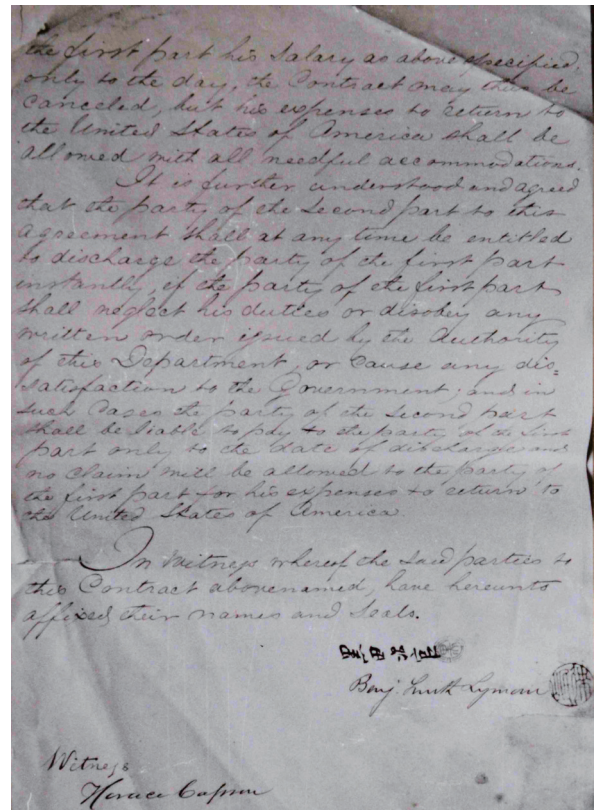 the first part his Salary as above specified,
only to the day, the Contract may then be
canceled, but his expenses to return to
the United States of America shall be
allowed with all needful accommodations.
It is further understood and agreed
that the party of the Second part to this
Agreement shall at any time be entitled
to discharge the party of the first part
instantly, if the party of the first part
shall neglect his duties or disobey any
written order issued by the Authority
of this Department, or cause any dis=
satisfaction to the Government; and in
such Cases the party of the Second part
shall be liable to pay to the party of the first
part only to the date of discharge and
no claim will be allowed to the party of
the first part for his expenses to return to
the United States of America.
In Witness whereof the said parties to
this Contract abovenamed, have hereunto
affixed their names and Seals.
黒田清隆
Benj. Smith Lyman
Witness
Horace Capron